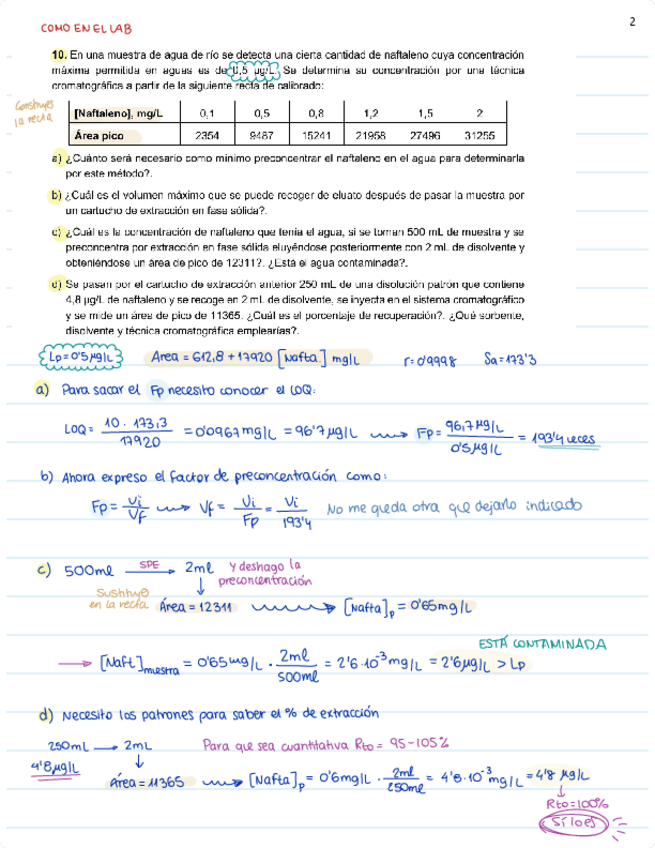 2
COMO EN EL LAB
10. En una muestra de agua de río se detecta una cierta cantidad de naftaleno cuya concentración
máxima permitida en aguas es de 0,5 µg/L. Se determina su concentración por una técnica
cromatográfica a partir de la siguiente recta de calibrado:
Construyo
la recta
[Naftaleno], mg/L 0,1 0,5 0,8 1,2 1,5 2
Área pico 2354 9487 15241 21958 27496 31255
a) ¿Cuánto será necesario como mínimo preconcentrar el naftaleno en el agua para determinarla
por este método?.
b) ¿Cuál es el volumen máximo que se puede recoger de eluato después de pasar la muestra por
un cartucho de extracción en fase sólida?.
c) ¿Cuál es la concentración de naftaleno que tenía el agua, si se toman 500 mL de muestra y se
preconcentra por extracción en fase sólida eluyéndose posteriormente con 2 mL de disolvente y
obteniéndose un área de pico de 12311?. ¿Está el agua contaminada?.
d) Se pasan por el cartucho de extracción anterior 250 mL de una disolución patrón que contiene
4,8 µg/L de naftaleno y se recoge en 2 mL de disolvente, se inyecta en el sistema cromatográfico
y se mide un área de pico de 11365. ¿Cuál es el porcentaje de recuperación?. ¿Qué sorbente,
disolvente y técnica cromatográfica emplearías?.
Lp=0'5 µg/L Area = 612,8 + 17920 [Nafta.] mg/L r=0'9998 Sa=173'3
a) Para sacar el Fp necesito conocer el LOQ:
LOQ = 10 · 173,3 / 17920 = 0'0967 mg/L = 96'7 µg/L → Fp = 96,7 µg/L / 0'5 µg/L = 193'4 veces
b) Ahora expreso el factor de preconcentración como:
Fp = Vi / Vf → Vf = Vi / Fp = Vi / 193'4 No me queda otra que dejarlo indicado
c) 500ml SPE → 2ml Y deshago la
preconcentración
Sustituyo
en la recta Área = 12311 → [Nafta]p = 0'65 mg/L
ESTÁ CONTAMINADA
→ [Naft]muestra = 0'65 mg/L · 2ml / 500ml = 2'6·10⁻³ mg/L = 2'6 µg/L > Lp
d) Necesito los patrones para saber el % de extracción
250mL → 2mL Para que sea cuantitativa Rto = 95-105%
4'8 µg/L
Área = 11365 → [Nafta]p = 0'6mg/L · 2ml / 250ml = 4'8·10⁻³ mg/L = 4'8 µg/L
Rto=100%
Sí lo es